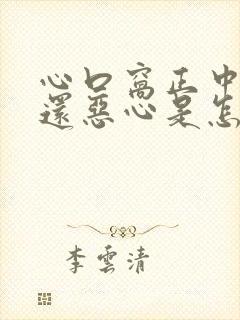 心口窩正中
還惡心是怎
李雲清